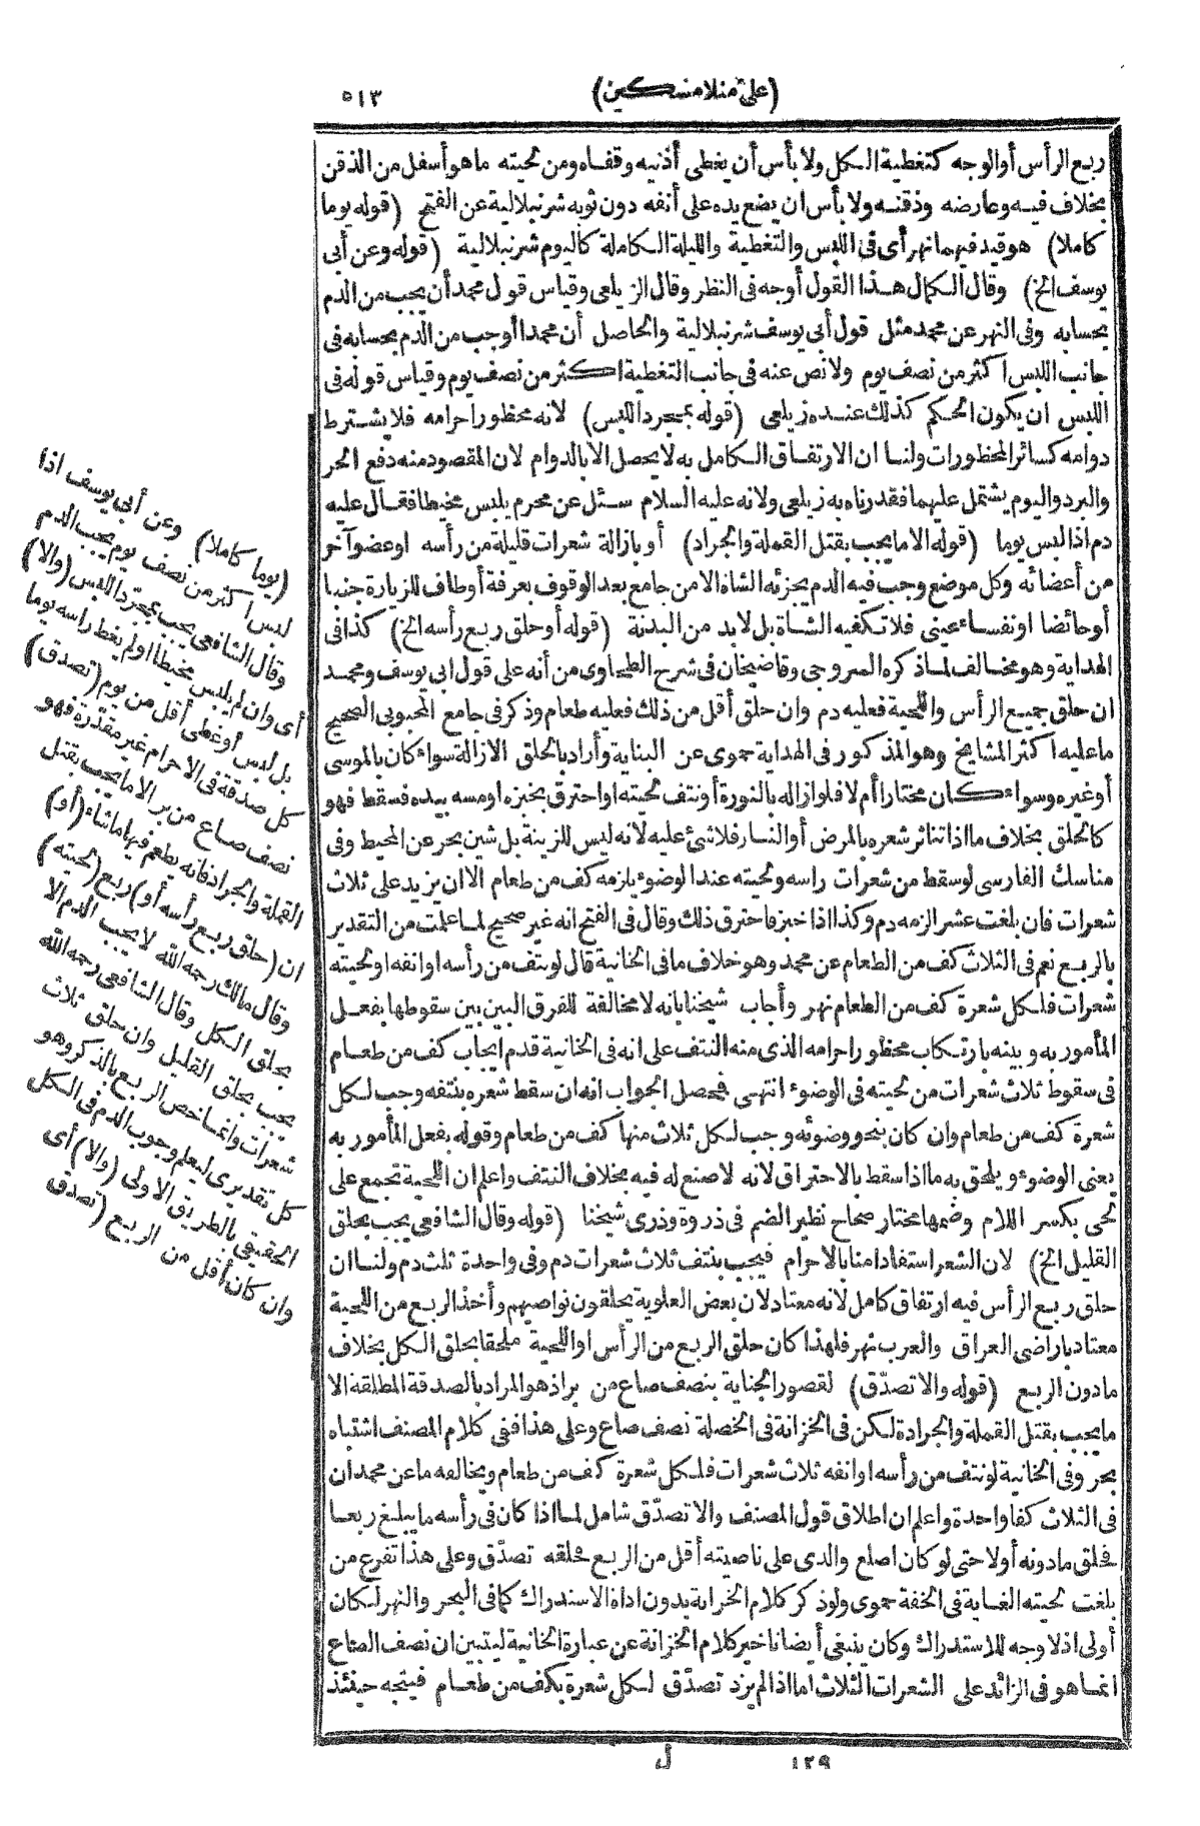 (على منلا مسكين)
٥١٣
ربع الرأس أو الوجه كتغطية الكل ولا بأس أن يغطى أذنيه وقفاه ومن لحيته ما هو أسفل من الذقن
بخلاف فيه وعارضه وذقنه ولا بأس ان يضع يده على أنفه دون ثوبه شرنبلالية عن الفتح (قوله يوما
كاملا) هو قيد فيهما نهر أى فى اللبس والتغطية والليلة الكاملة كاليوم شرنبلالية (قوله وعن أبى
يوسف الخ) وقال الكمال هذا القول أوجه فى النظر وقال الزيلعى وقياس قول محمد أن يجب من الدم
بحسابه وفى النهر عن محمد مثل قول أبى يوسف شرنبلالية والحاصل أن محمدا أوجب من الدم بحسابه فى
جانب اللبس اكثر من نصف يوم ولا نص عنه فى جانب التغطية اكثر من نصف يوم وقياس قوله فى
اللبس ان يكون الحكم كذلك عنده زيلعى (قوله بمجرد اللبس) لانه محظور احرامه فلا يشترط
دوامه كسائر المحظورات ولنا ان الارتفاق الكامل به لا يحصل الا بالدوام لان المقصود منه دفع الحر
والبرد واليوم يشتمل عليهما فقدرناه به زيلعى ولانه عليه السلام سئل عن محرم يلبس مخيطا فقال عليه
دم اذا لبس يوما (قوله الا ما يجب بقتل القملة والجراد) أو بازالة شعرات قليلة من رأسه او عضو آخر
من أعضائه وكل موضع وجب فيه الدم يجزئه الشاة الا من جامع بعد الوقوف بعرفة أو طاف للزيارة جنبا
أو حائضا او نفساء عينى فلا تكفيه الشاة بل لا بد من البدنة (قوله أو حلق ربع رأسه الخ) كذا فى
الهداية وهو مخالف لما ذكره السروجى وقاضيخان فى شرح الطحاوى من أنه على قول ابى يوسف ومحمد
ان حلق جميع الرأس واللحية فعليه دم وان حلق أقل من ذلك فعليه طعام وذكر فى جامع المحبوبى الصحيح
ما عليه اكثر المشايخ وهو المذكور فى الهداية حموى عن البناية وأراد بالحلق الازالة سواء كان بالموسى
أو غيره وسواء كان مختارا أم لا فلو ازاله بالنورة أو نتف لحيته او احترق بخبزه او مسه بيده فسقط فهو
كالحلق بخلاف ما اذا تناثر شعره بالمرض أو النار فلا شئ عليه لانه ليس للزينة بل شين بحر عن المحيط وفى
مناسك الفارسى لو سقط من شعرات راسه ولحيته عند الوضوء يلزمه كف من طعام الا ان يزيد على ثلاث
شعرات فان بلغت عشرا لزمه دم وكذا اذا خبز فاحترق ذلك وقال فى الفتح انه غير صحيح لما علمت من التقدير
بالربع نعم فى الثلاث كف من الطعام عن محمد وهو خلاف ما فى الخانية قال لو نتف من رأسه او انفه او لحيته
شعرات فلكل شعرة كف من الطعام نهر وأجاب شيخنا بانه لا مخالفة للفرق البين بين سقوطها بفعل
المأمور به وبينه بارتكاب محظور احرامه الذى منه النتف على انه فى الخانية قدم ايجاب كف من طعام
فى سقوط ثلاث شعرات من لحيته فى الوضوء انتهى فحصل الجواب انه ان سقط شعره بنتفه وجب لكل
شعرة كف من طعام وان كان بنحو وضوئه وجب لكل ثلاث منها كف من طعام وقوله بفعل المأمور به
يعنى الوضوء ويلحق به ما اذا سقط بالاحتراق لانه لا صنع له فيه بخلاف النتف واعلم ان اللحية تجمع على
لحى بكسر اللام وضمها مختار صحاح نظير الضم فى ذروة وذرى شيخنا (قوله وقال الشافعى يجب بحلق
القليل الخ) لان الشعر استفاد امنا بالاحرام فيجب بنتف ثلاث شعرات دم وفى واحدة ثلث دم ولنا ان
حلق ربع الرأس فيه ارتفاق كامل لانه معتاد لان بعض العلوية يحلقون نواصيهم وأخذ الربع من اللحية
معتاد باراضى العراق والعرب نهر فلهذا كان حلق الربع من الرأس او اللحية ملحقا بحلق الكل بخلاف
ما دون الربع (قوله والا تصدّق) لقصور الجناية بنصف صاع من بر اذ هو المراد بالصدقة المطلقة الا
ما يجب بقتل القملة والجرادة لكن فى الخزانة فى الخصلة نصف صاع وعلى هذا ففى كلام المصنف اشتباه
بحر وفى الخانية لو نتف من رأسه او انفه ثلاث شعرات فلكل شعرة كف من طعام ويخالفه ما عن محمد ان
فى الثلاث كفا واحدة واعلم ان اطلاق قول المصنف والا تصدّق شامل لما اذا كان فى رأسه ما يبلغ ربعا
فحلق ما دونه أو لا حتى لو كان اصلع والذى على ناصيته أقل من الربع فحلقه تصدّق وعلى هذا تفرع من
بلغت لحيته الغاية فى الخفة حموى ولو ذكر كلام الخزانة بدون اداة الاستدراك كما فى البحر والنهر لكان
أولى اذ لا وجه للاستدراك وكان ينبغى أيضا تاخير كلام الخزانة عن عبارة الخانية ليتبين ان نصف الصاع
انما هو فى الزائد على الشعرات الثلاث اما اذا لم يزد تصدّق لكل شعرة بكف من طعام فيتجه حينئذ
(يوما كاملا) وعن أبى يوسف اذا
لبس اكثر من نصف يوم يجب الدم
وقال الشافعى يجب بمجرّد اللبس (والا)
أى وان لم يلبس مخيطا او لم يغط راسه يوما
بل لبس أو غطى أقل من يوم (تصدق)
كل صدقة فى الاحرام غير مقدّرة فهو
نصف صاع من بر الا ما يجب بقتل
القملة والجراد فانه يطعم فيها ما شاء (أو)
ان (حلق ربع رأسه أو) ربع (لحيته)
وقال مالك رحمه الله لا يجب الدم الا
بحلق الكل وقال الشافعى رحمه الله
يجب بحلق القليل وان حلق ثلاث
شعرات وانما خص الربع بالذكر وهو
كل تقديرى ليعلم وجوب الدم فى الكل
الحقيقى بالطريق الاولى (والا) أى
وان كان أقل من الربع (تصدق
١٢٩
ل